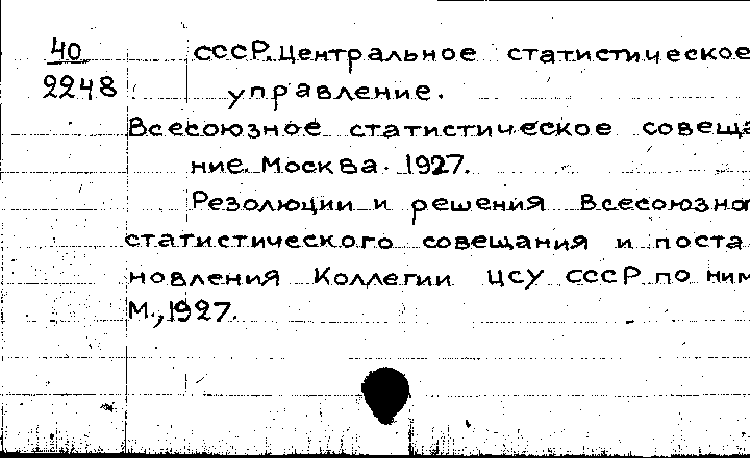 40
2248
СССР. Центральное статистическое
управление.
Всесоюзное статистическое совеща
ние. Москва. 1927.
Резолюции и решения Всесоюзног
статистического совещания и поста
новления Коллегии ЦСУ СССР по ним
М., 1927.